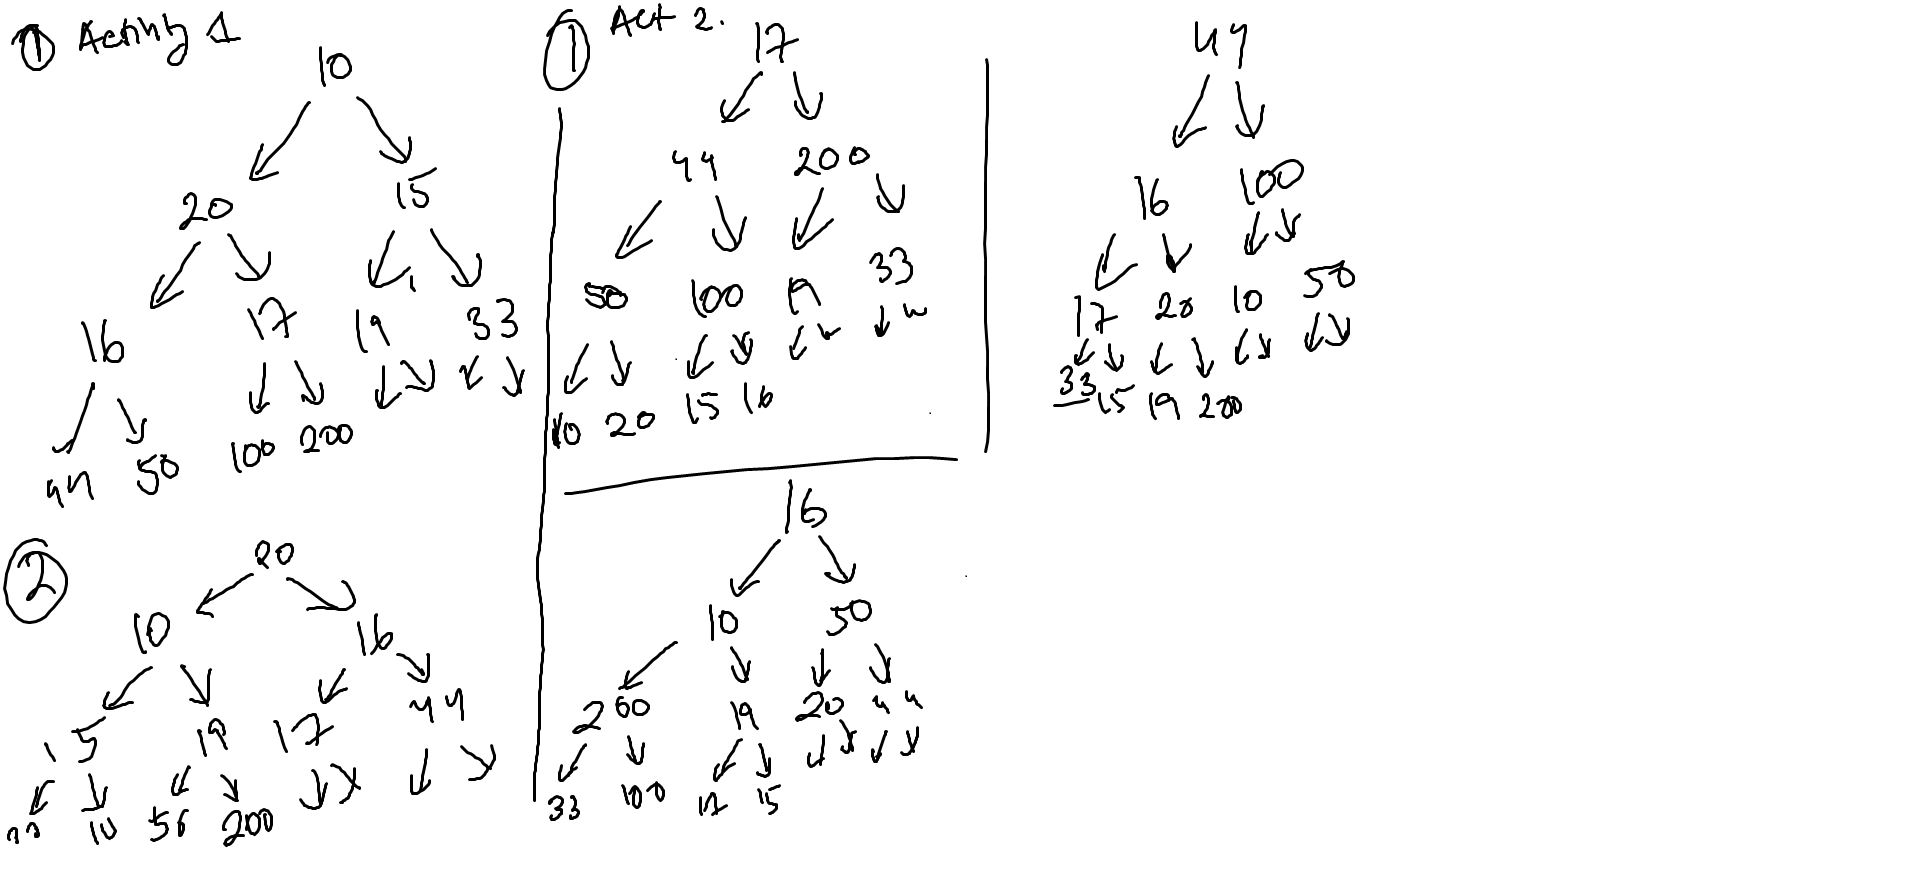 1 Activity 1
10
20 15
16 17 19 33
44 50 100 200
2
20
10 16
15 19 17 44
10 200
1 Act 2.
17
44 200
50 100 19 33
10 20 15 16
16
10 50
200 19 20 44
33 100 17 15
44
16 100
17 20 10 50
33 15 19 200